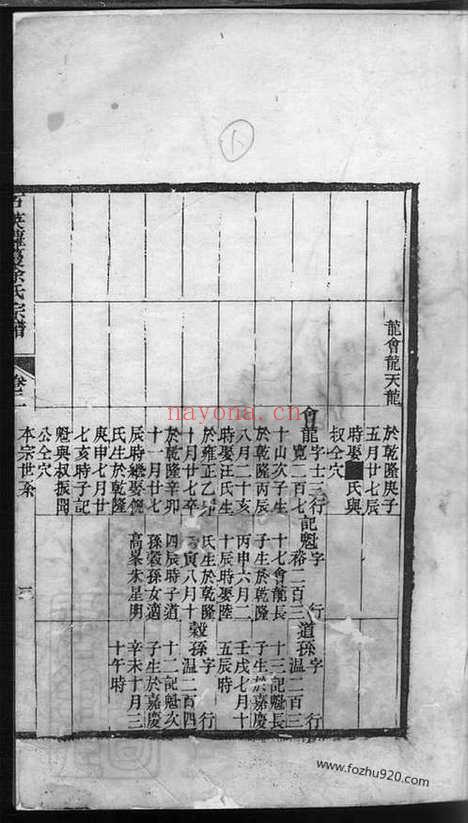 龍會龍天龍
於乾隆庚子
五月廿七辰
時娶■氏與
叔仝穴
會龍字士三行
寬一百七
十山次子生
於乾隆丙辰
八月二十亥
時娶汪氏生
於雍正乙卯
十月廿七卒
於乾隆辛卯
十一月廿七
辰時繼娶
氏生於乾隆
庚申七月廿
七亥時子記
魁與叔振問
公仝穴
記魁字 行
裕二百三
十七會龍長
子生於乾隆
丙申六月二
十辰時娶陸
氏生於乾隆
寅八月十
四辰時子道
孫穀孫女適
高峯朱星明
道孫字 行
溫二百三
十三記魁長
子生於嘉慶
壬戌七月十
五辰時
穀孫字 行
溫二百四
十二記魁次
子生於嘉慶
辛未十月三
十午時
余氏宗譜
卷二
本宗世系
三
nayona.cn
www.fozhu920.com